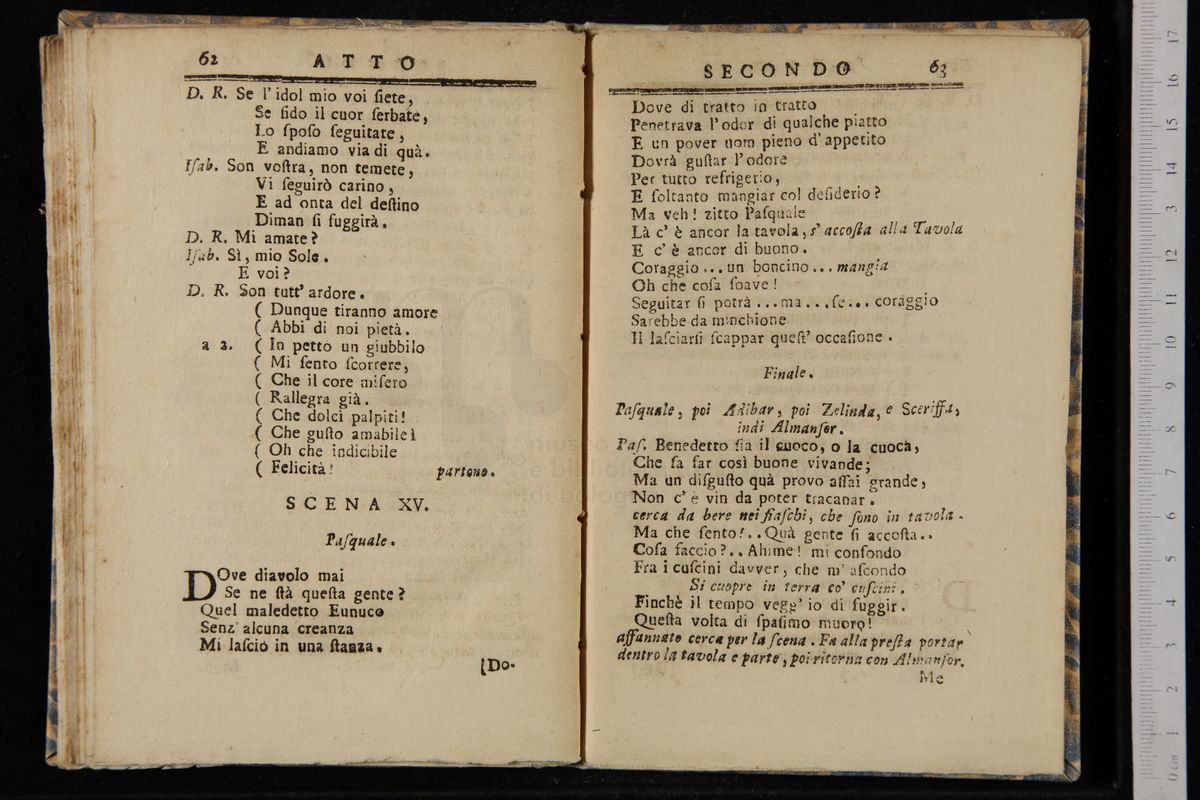 62 ATTO
D. R. Se l'idol mio voi ſiete,
Se fido il cuor ſerbate,
Lo ſpoſo ſeguitate,
E andiamo via di quà.
Iſab. Son voſtra, non temete,
Vi ſeguirò carino,
E ad onta del deſtino
Diman ſi fuggirà.
D. R. Mi amate?
Iſab. Sì, mio Sole.
E voi?
D. R. Son tutt' ardore.
( Dunque tiranno amore
( Abbi di noi pietà.
a 2. ( In petto un giubbilo
( Mi ſento ſcorrere,
( Che il core miſero
( Rallegra già.
( Che dolci palpiti!
( Che guſto amabile!
( Oh che indicibile
( Felicità! partono.
SCENA XV.
Paſquale.
DOve diavolo mai
Se ne ſtà queſta gente?
Quel maledetto Eunuco
Senz' alcuna creanza
Mi laſciò in una ſtanza.
Do-
SECONDO 63
Dove di tratto in tratto
Penetrava l'odor di qualche piatto
E un pover uom pieno d'appetito
Dovrà guſtar l'odore
Per tutto refrigerio,
E ſoltanto mangiar col deſiderio?
Ma veh! zitto Paſquale
Là c' è ancor la tavola, s' accoſta alla Tavola
E c' è ancor di buono.
Coraggio... un boncino... mangia
Oh che coſa ſoave!
Seguitar ſi potrà... ma... ſe... coraggio
Sarebbe da minchione
Il laſciarſi ſcappar queſt' occaſione.
Finale.
Paſquale, poi Adibar, poi Zelinda, e Sceriffa,
indi Almanſor.
Paſ. Benedetto ſia il cuoco, o la cuoca,
Che fa far così buone vivande;
Ma un diſguſto quà provo aſſai grande,
Non c' è vin da poter tracanar.
cerca da bere nei fiaſchi, che ſono in tavola.
Ma che ſento!.. Quà gente ſi accoſta..
Coſa faccio?.. Ahime! mi confondo
Fra i cuſcini davver, che m' aſcondo
Si cuopre in terra co' cuſcini.
Finchè il tempo vegg' io di fuggir.
Queſta volta di ſpaſimo muoro!
affannato cerca per la ſcena. Fa alla preſta portar
dentro la tavola e parte, poi ritorna con Almanſor.
Me